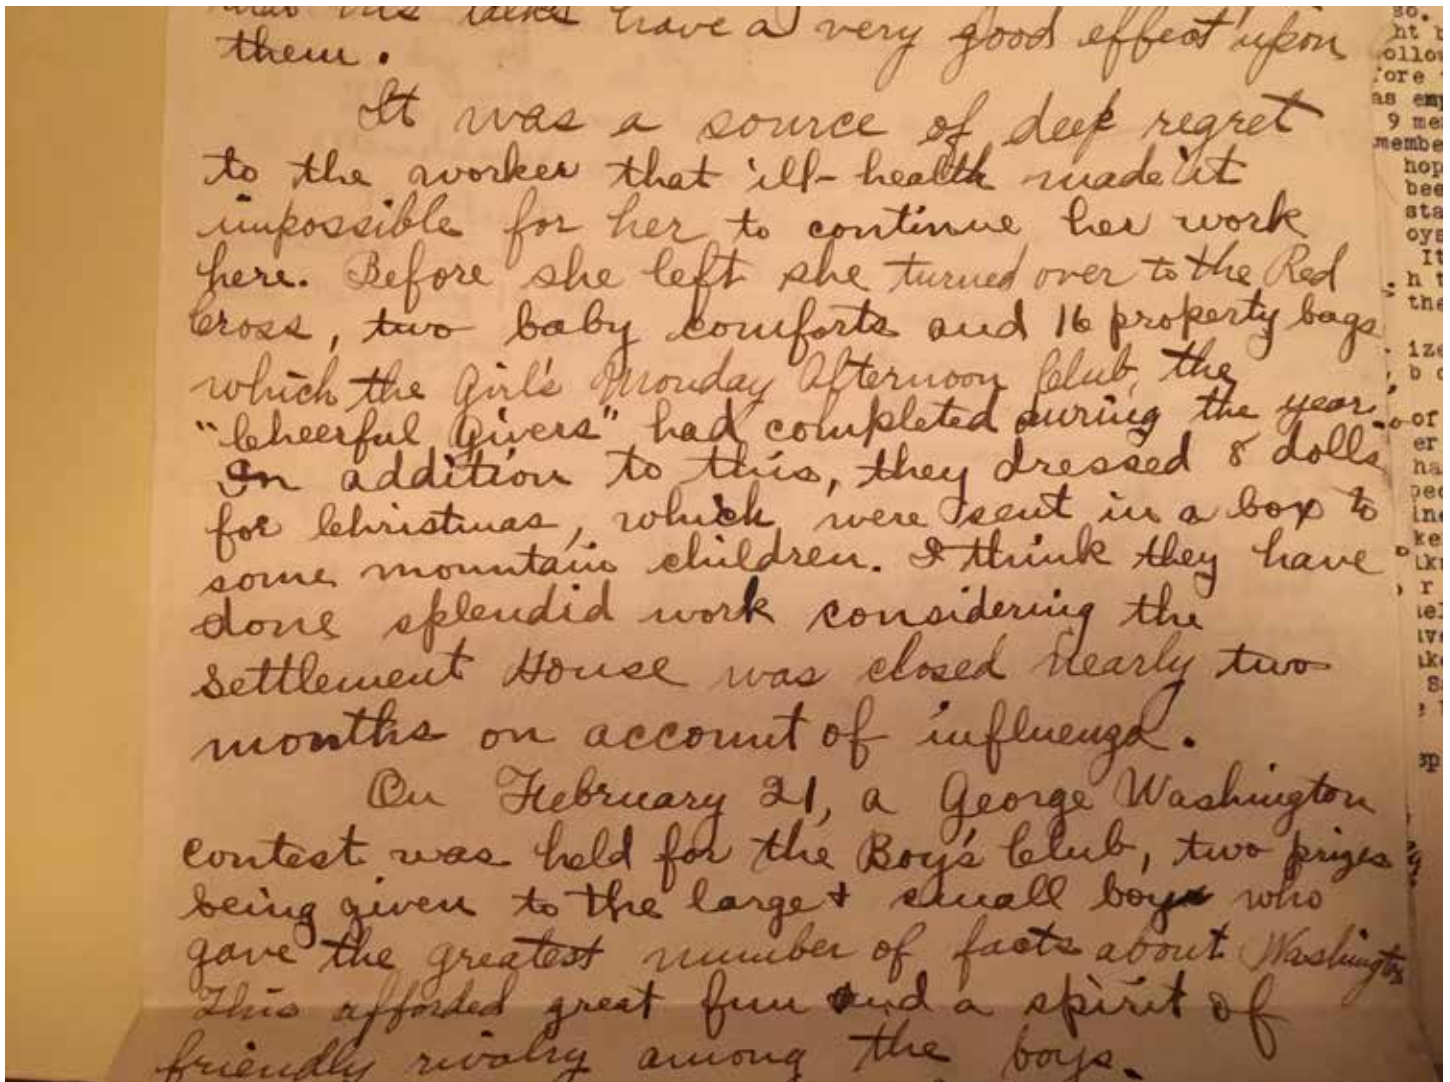 his talks have a very good effect upon
them.
It was a source of deep regret
to the worker that ill-health made it
impossible for her to continue her work
here. Before she left she turned over to the Red
Cross, two baby comforts and 16 property bags
which the Girl's Monday Afternoon Club, the
"Cheerful Givers" had completed during the year.
In addition to this, they dressed 8 dolls
for Christmas, which were sent in a box to
some mountain children. I think they have
done splendid work considering the
Settlement House was closed nearly two
months on account of influenza.
On February 21, a George Washington
contest was held for the Boy's Club, two prizes
being given to the large + small boys who
gave the greatest number of facts about Washington
This afforded great fun and a spirit of
friendly rivalry among the boys.
so.
ht b
ollow
fore
as emp
9 me
membe
hop
bee
sta
oys
It
h t
the
ize
b c
or
er
ha